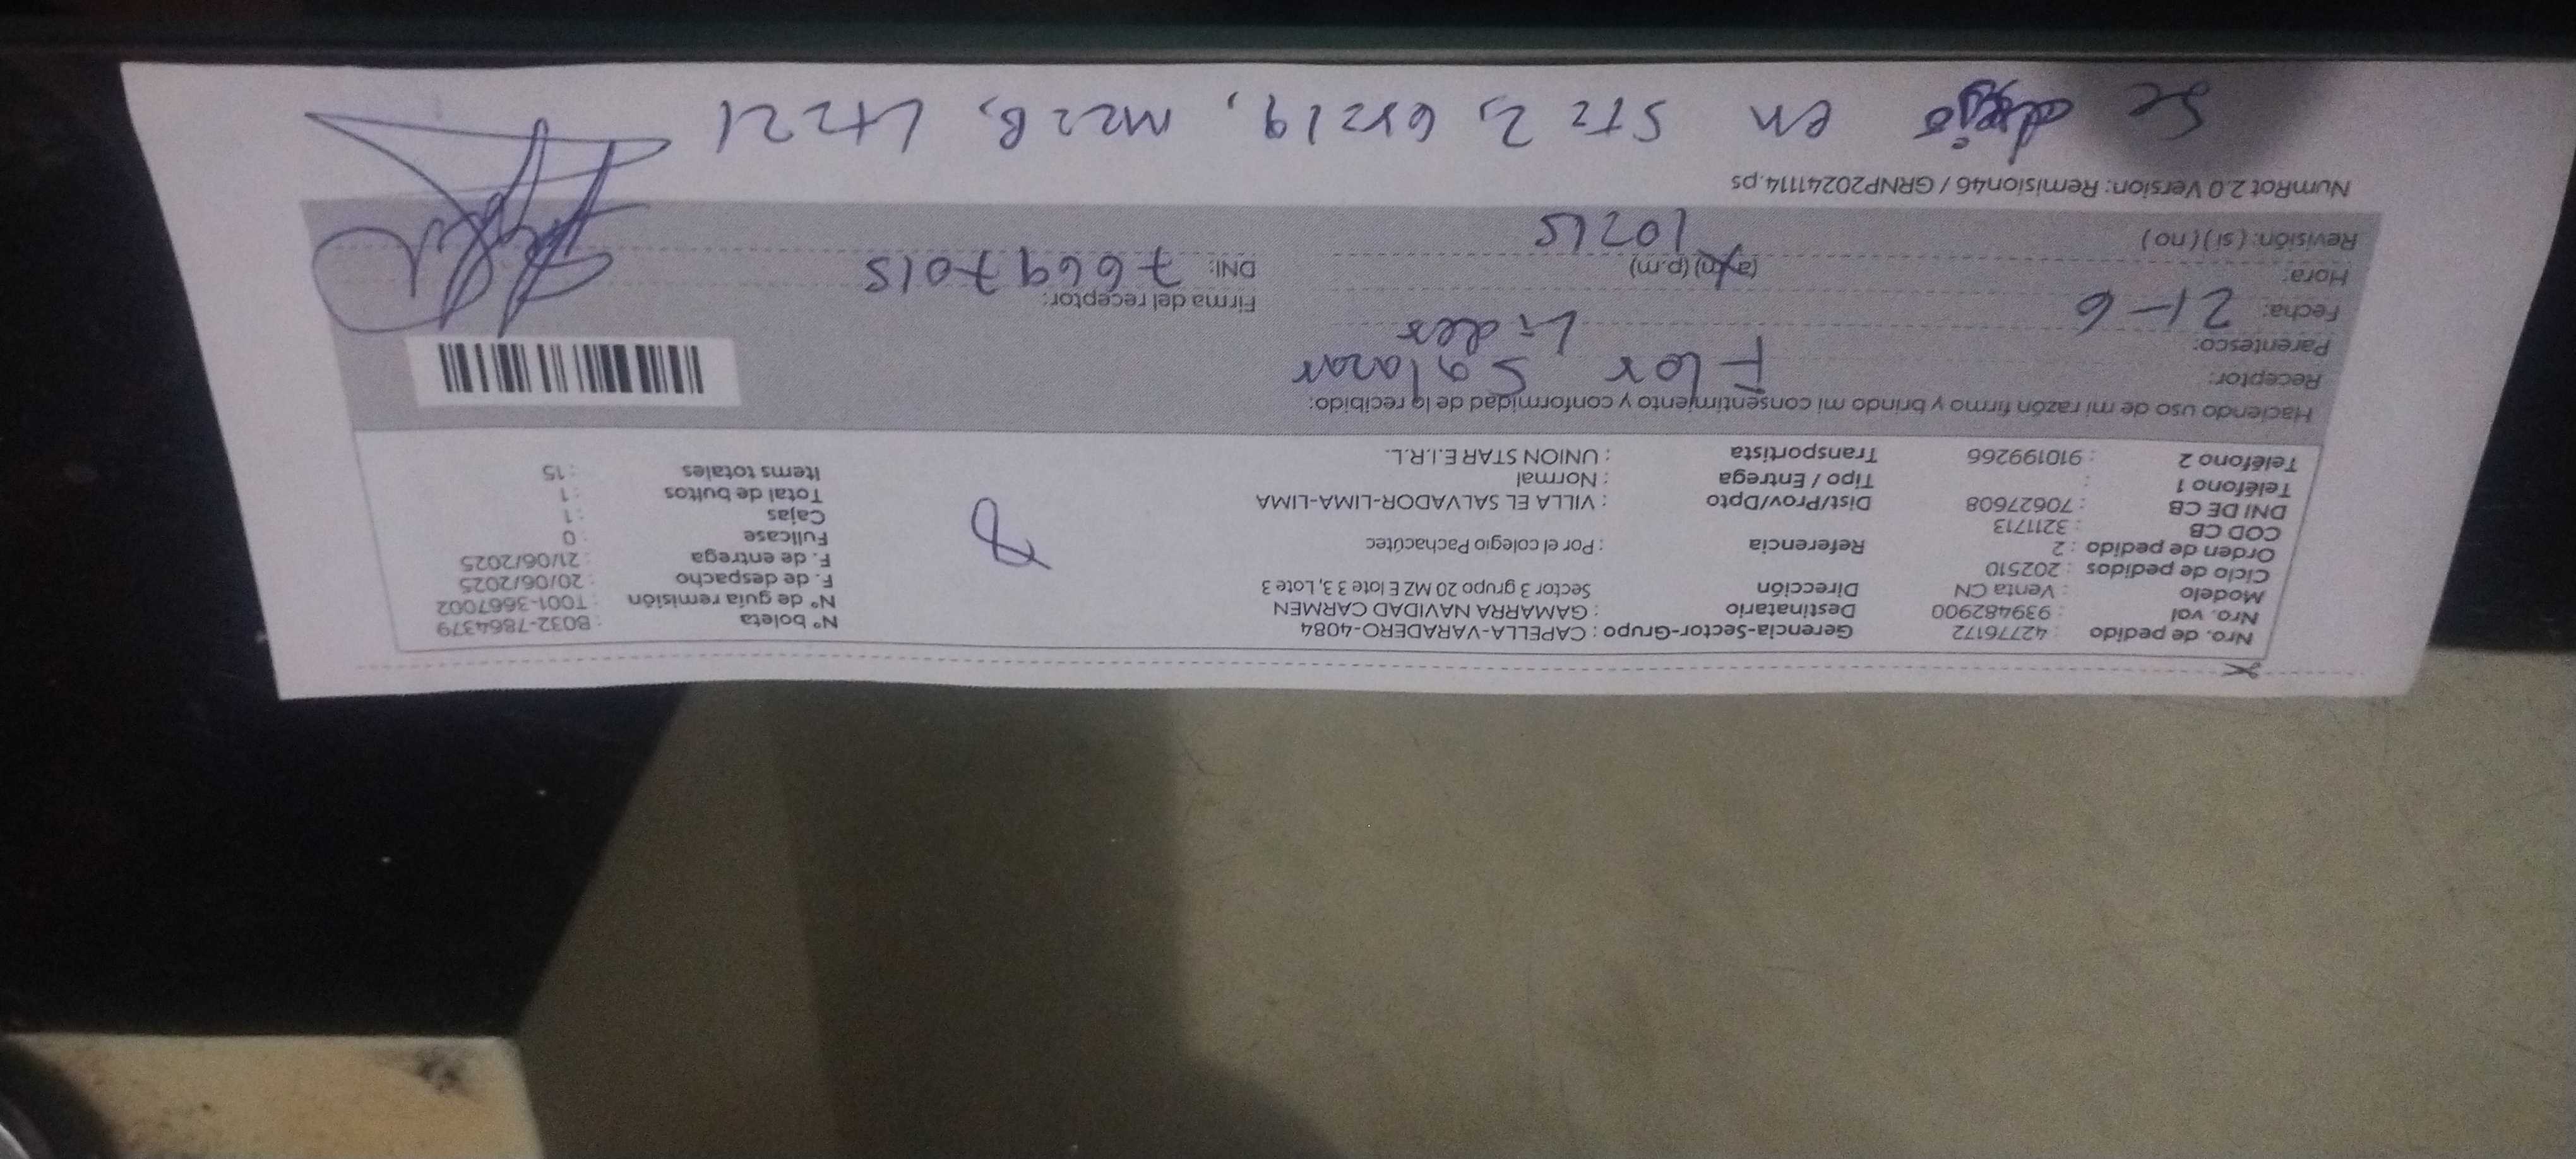 Nro. de pedido : 42776172 Gerencia-Sector-Grupo : CAPELLA-VARADERO-4084 N° boleta : B032-7864379
Nro. val : 939482900 Destinatario : GAMARRA NAVIDAD CARMEN N° de guía remisión : T001-3667002
Modelo : Venta CN Dirección Sector 3 grupo 20 MZ E lote 3 3, Lote 3 F. de despacho : 20/06/2025
Ciclo de pedidos : 202510 F. de entrega : 21/06/2025
Orden de pedido : 2 Referencia : Por el colegio Pachacútec Fullcase : 0
COD CB : 3211713 Cajas : 1
DNI DE CB : 70627608 Dist/Prov/Dpto : VILLA EL SALVADOR-LIMA-LIMA Total de bultos : 1
Teléfono 1 : Tipo / Entrega : Normal Items totales : 15
Teléfono 2 : 910199266 Transportista : UNION STAR E.I.R.L.
8
Haciendo uso de mi razón firmo y brindo mi consentimiento y conformidad de lo recibido:
Receptor: Flor Salazar
Parentesco: Lider
Fecha: 21-6 Firma del receptor:
Hora: (a.m) (p.m) 10:15 DNI: 76697015
Revisión: ( si ) ( no )
NumRot 2.0 Version: Remision46 / GRNP20241114.ps
Se dejó en St: 2, Gr: 19, Mz: B, Lt: 21